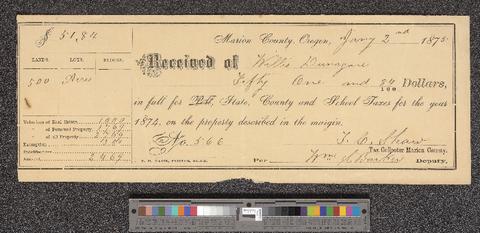 $ 51,84
LANDS. LOTS. BLOCKS.
500 Acres
Valuation of Real Estate, 1000
" of Personal Property,
" of all Property,
Exemption,
Amount, 2469
Marion County, Oregon, Jany 2nd 1875
Received of Willis Dunagan
Fifty One and 84/100 Dollars,
in full for State, County and School Taxes for the year
1874, on the property described in the margin.
No. 566
T. C. Shaw
Tax Collector Marion County.
Per Wm J. Barker Deputy.